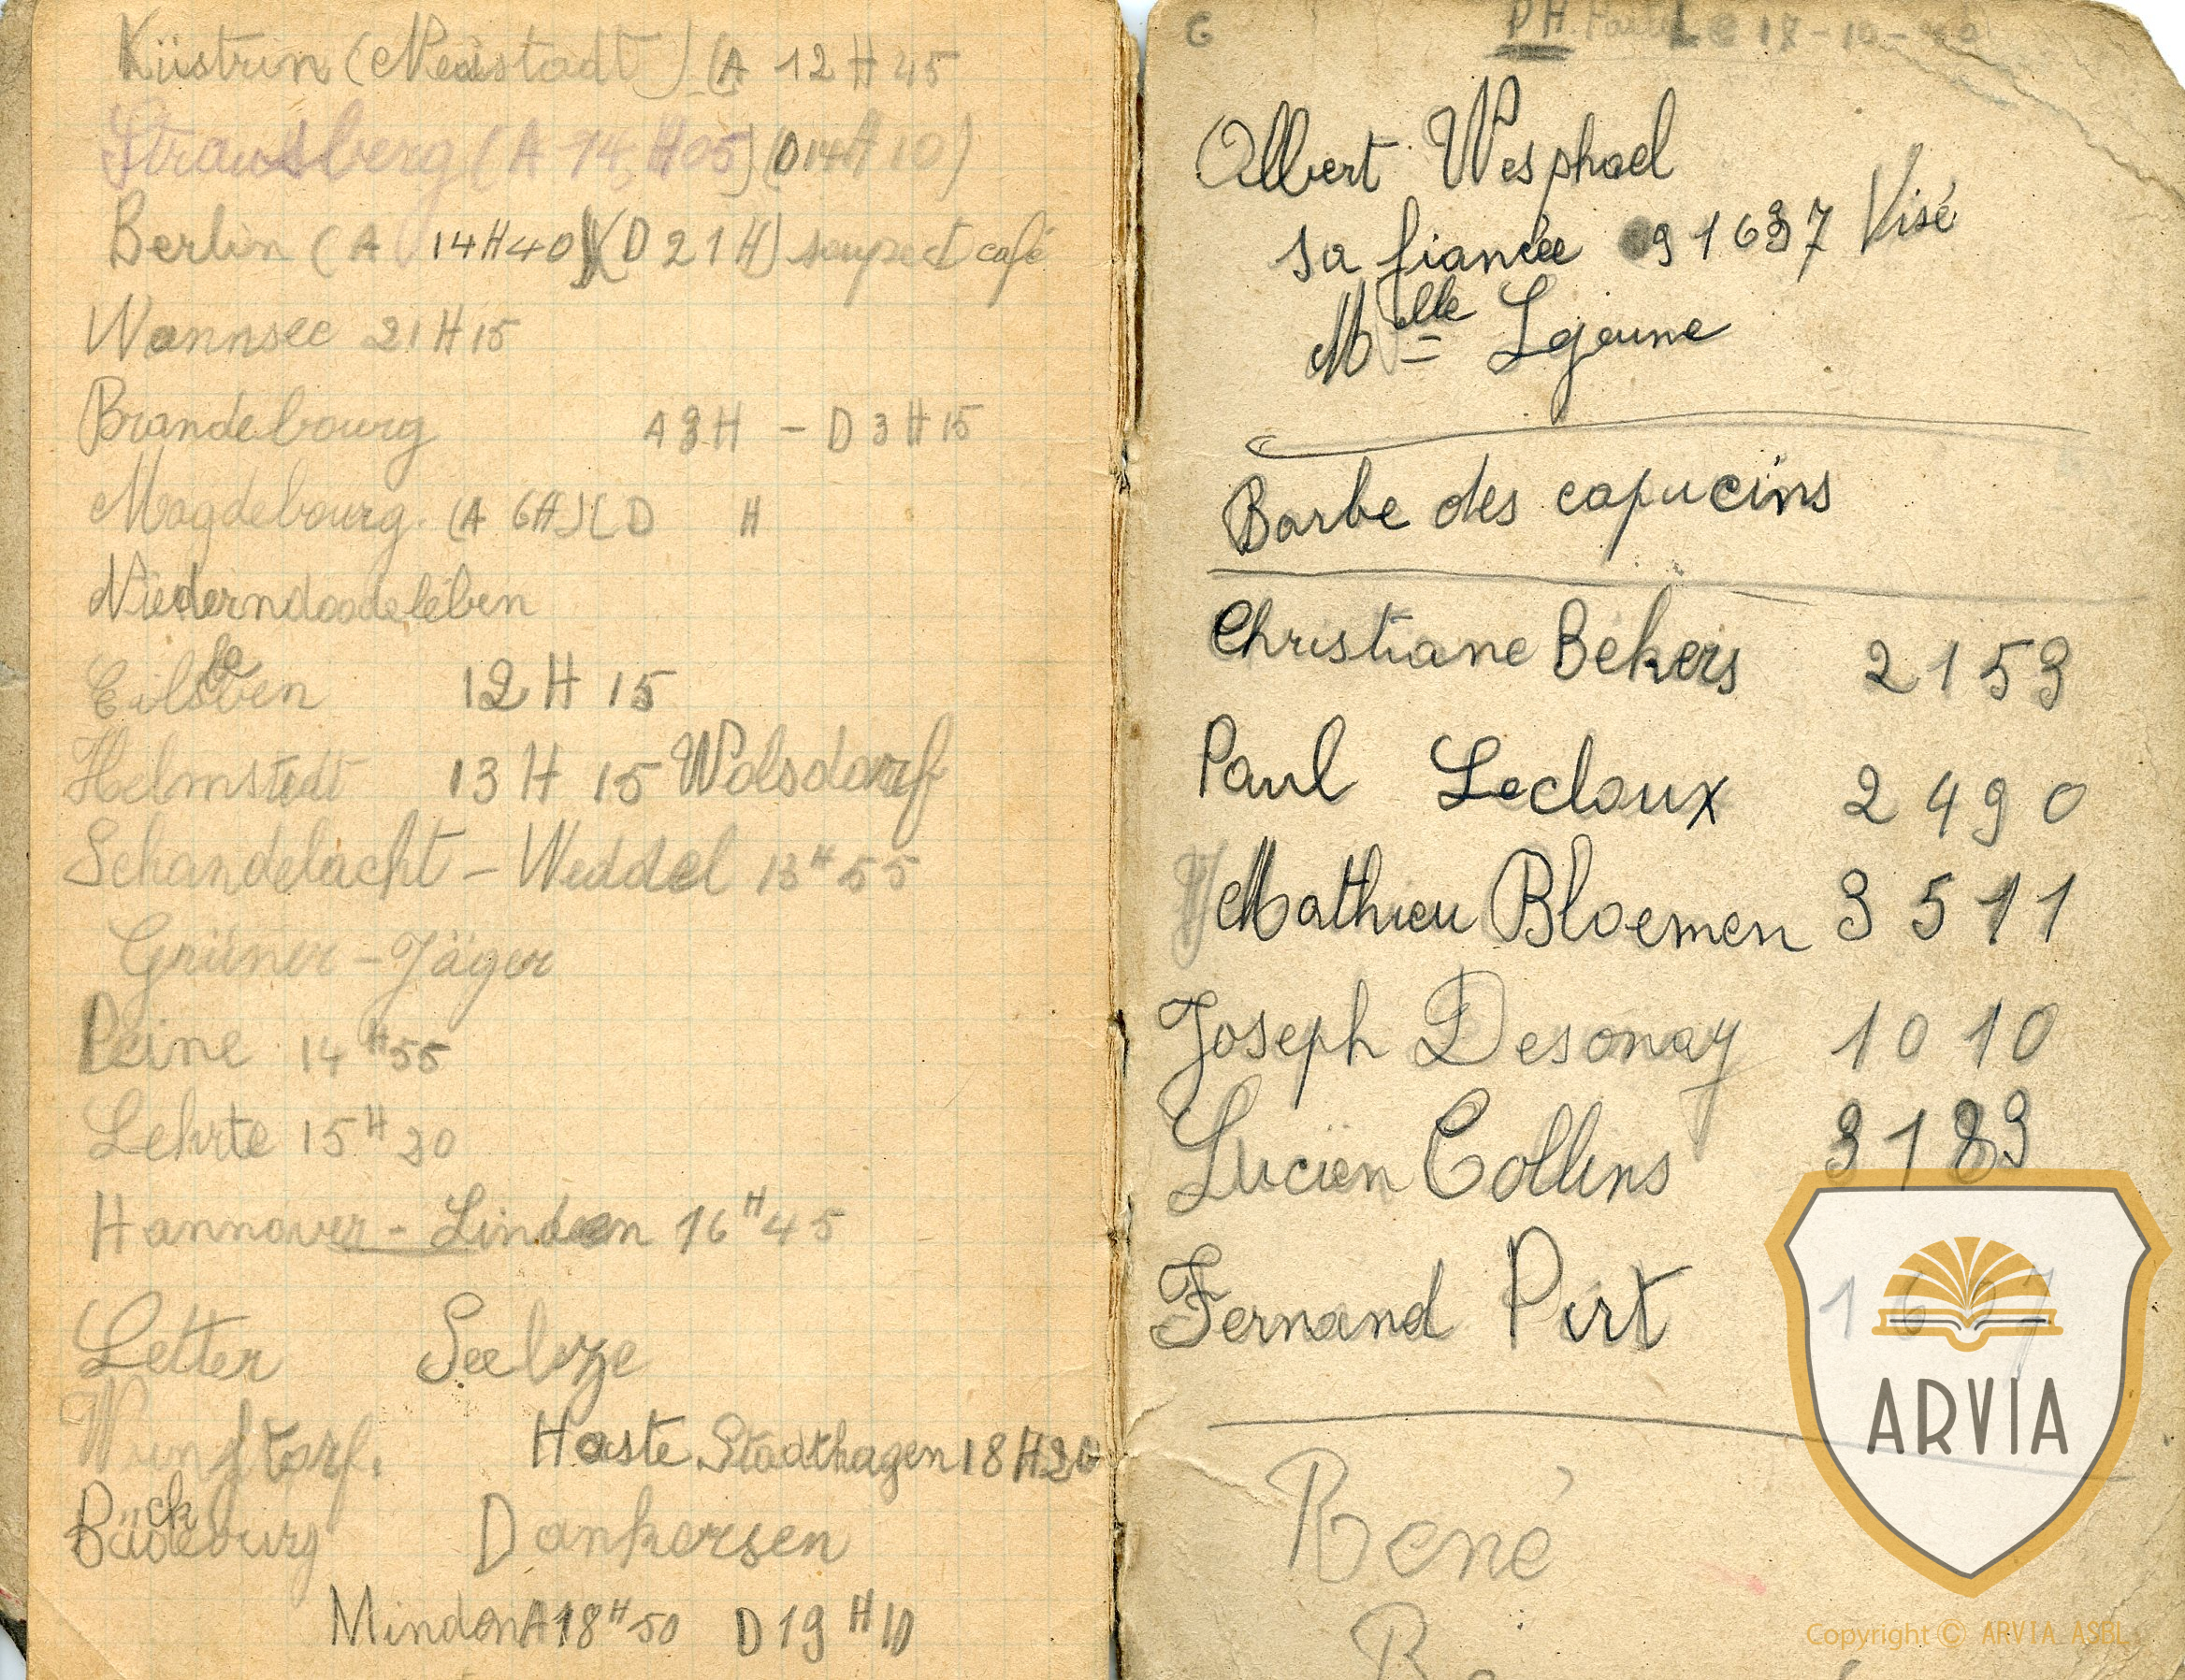 Küstrin (Neustadt) (A 12 H 45
Strausberg (A 14, H05) (D14H 10)
Berlin (A 14H40) (D 21H) soupe et café
Wannsee 21 H 15
Brandebourg A 3 H - D 3 H 15
Magdebourg. (A 6H) (D H
Niederndodeleben
Eilsleben 12 H 15
Helmstedt 13 H 15 Wolsdorf
Schandelacht - Weddel 13 H 55
Grüner - Jäger
Peine 14 H 55
Lehrte 15 H 20
Hannover - Linden 16 H 45
Letter Seelze
Wunstorf. Haste Stadthagen 18 H 20
Bückeburg Dankersen
Minden A 18 H 50 D 19 H 10
G PH Le 17-10-
Albert Wesphael
sa fiancée 91637 Visé
Melle Lejeune
Barbe des capucins
Christiane Bekers 2153
Paul Lecloux 2490
Mathieu Bloemen 3511
Joseph Desonay 1010
Lucien Collins 3183
Fernand Pirt
René
ARVIA
Copyright © ARVIA ASBL